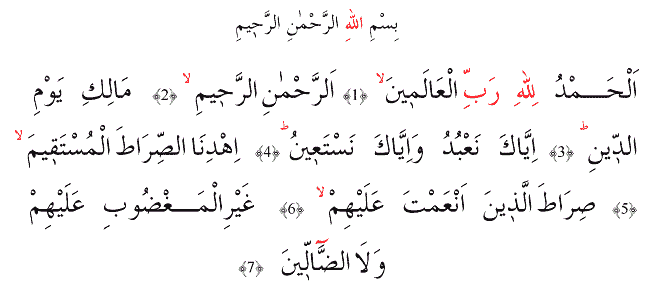 بِسْمِ اللهِ الرَّحْمٰنِ الرَّحٖيمِ
اَلْحَـــمْدُ لِلهِ رَبِّ الْعَالَمٖينَۙ ﴿1﴾ اَلرَّحْمٰنِ الرَّحٖيمِۙ ﴿2﴾ مَالِكِ يَوْمِ
الدّٖينِۜ ﴿3﴾ اِيَّاكَ نَعْبُدُ وَاِيَّاكَ نَسْتَعٖينُۜ ﴿4﴾ اِهْدِنَا الصِّرَاطَ الْمُسْتَقٖيمَۙ
﴿5﴾ صِرَاطَ الَّذٖينَ اَنْعَمْتَ عَلَيْهِمْۙ ﴿6﴾ غَيْرِ الْمَـــغْضُوبِ عَلَيْهِمْ
وَلَا الضَّٓالّٖينَ ﴿7﴾